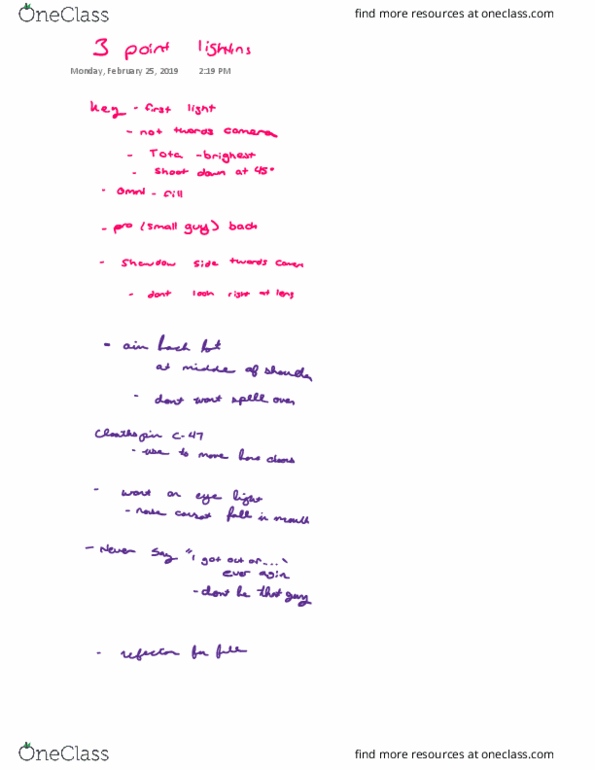 OneClass
find more resources at oneclass.com
3 point lighting
Monday, February 25, 2019 2:19 PM
key - first light
- not twords camera
- Tota - brightest
- Shoot down at 45°
- omni - fill
- pro (small guy) back
- Showdow side twords camera
- dont look right at lens
- aim back
at middle of shoulder
- dont want spell over
Cloathspin C-47
- use to move
- want an eye light
- nose cannot fall in mouth
- Never Say "I got out of...."
ever agin
- dont be that guy
- reflector for fill
OneClass
find more resources at oneclass.com